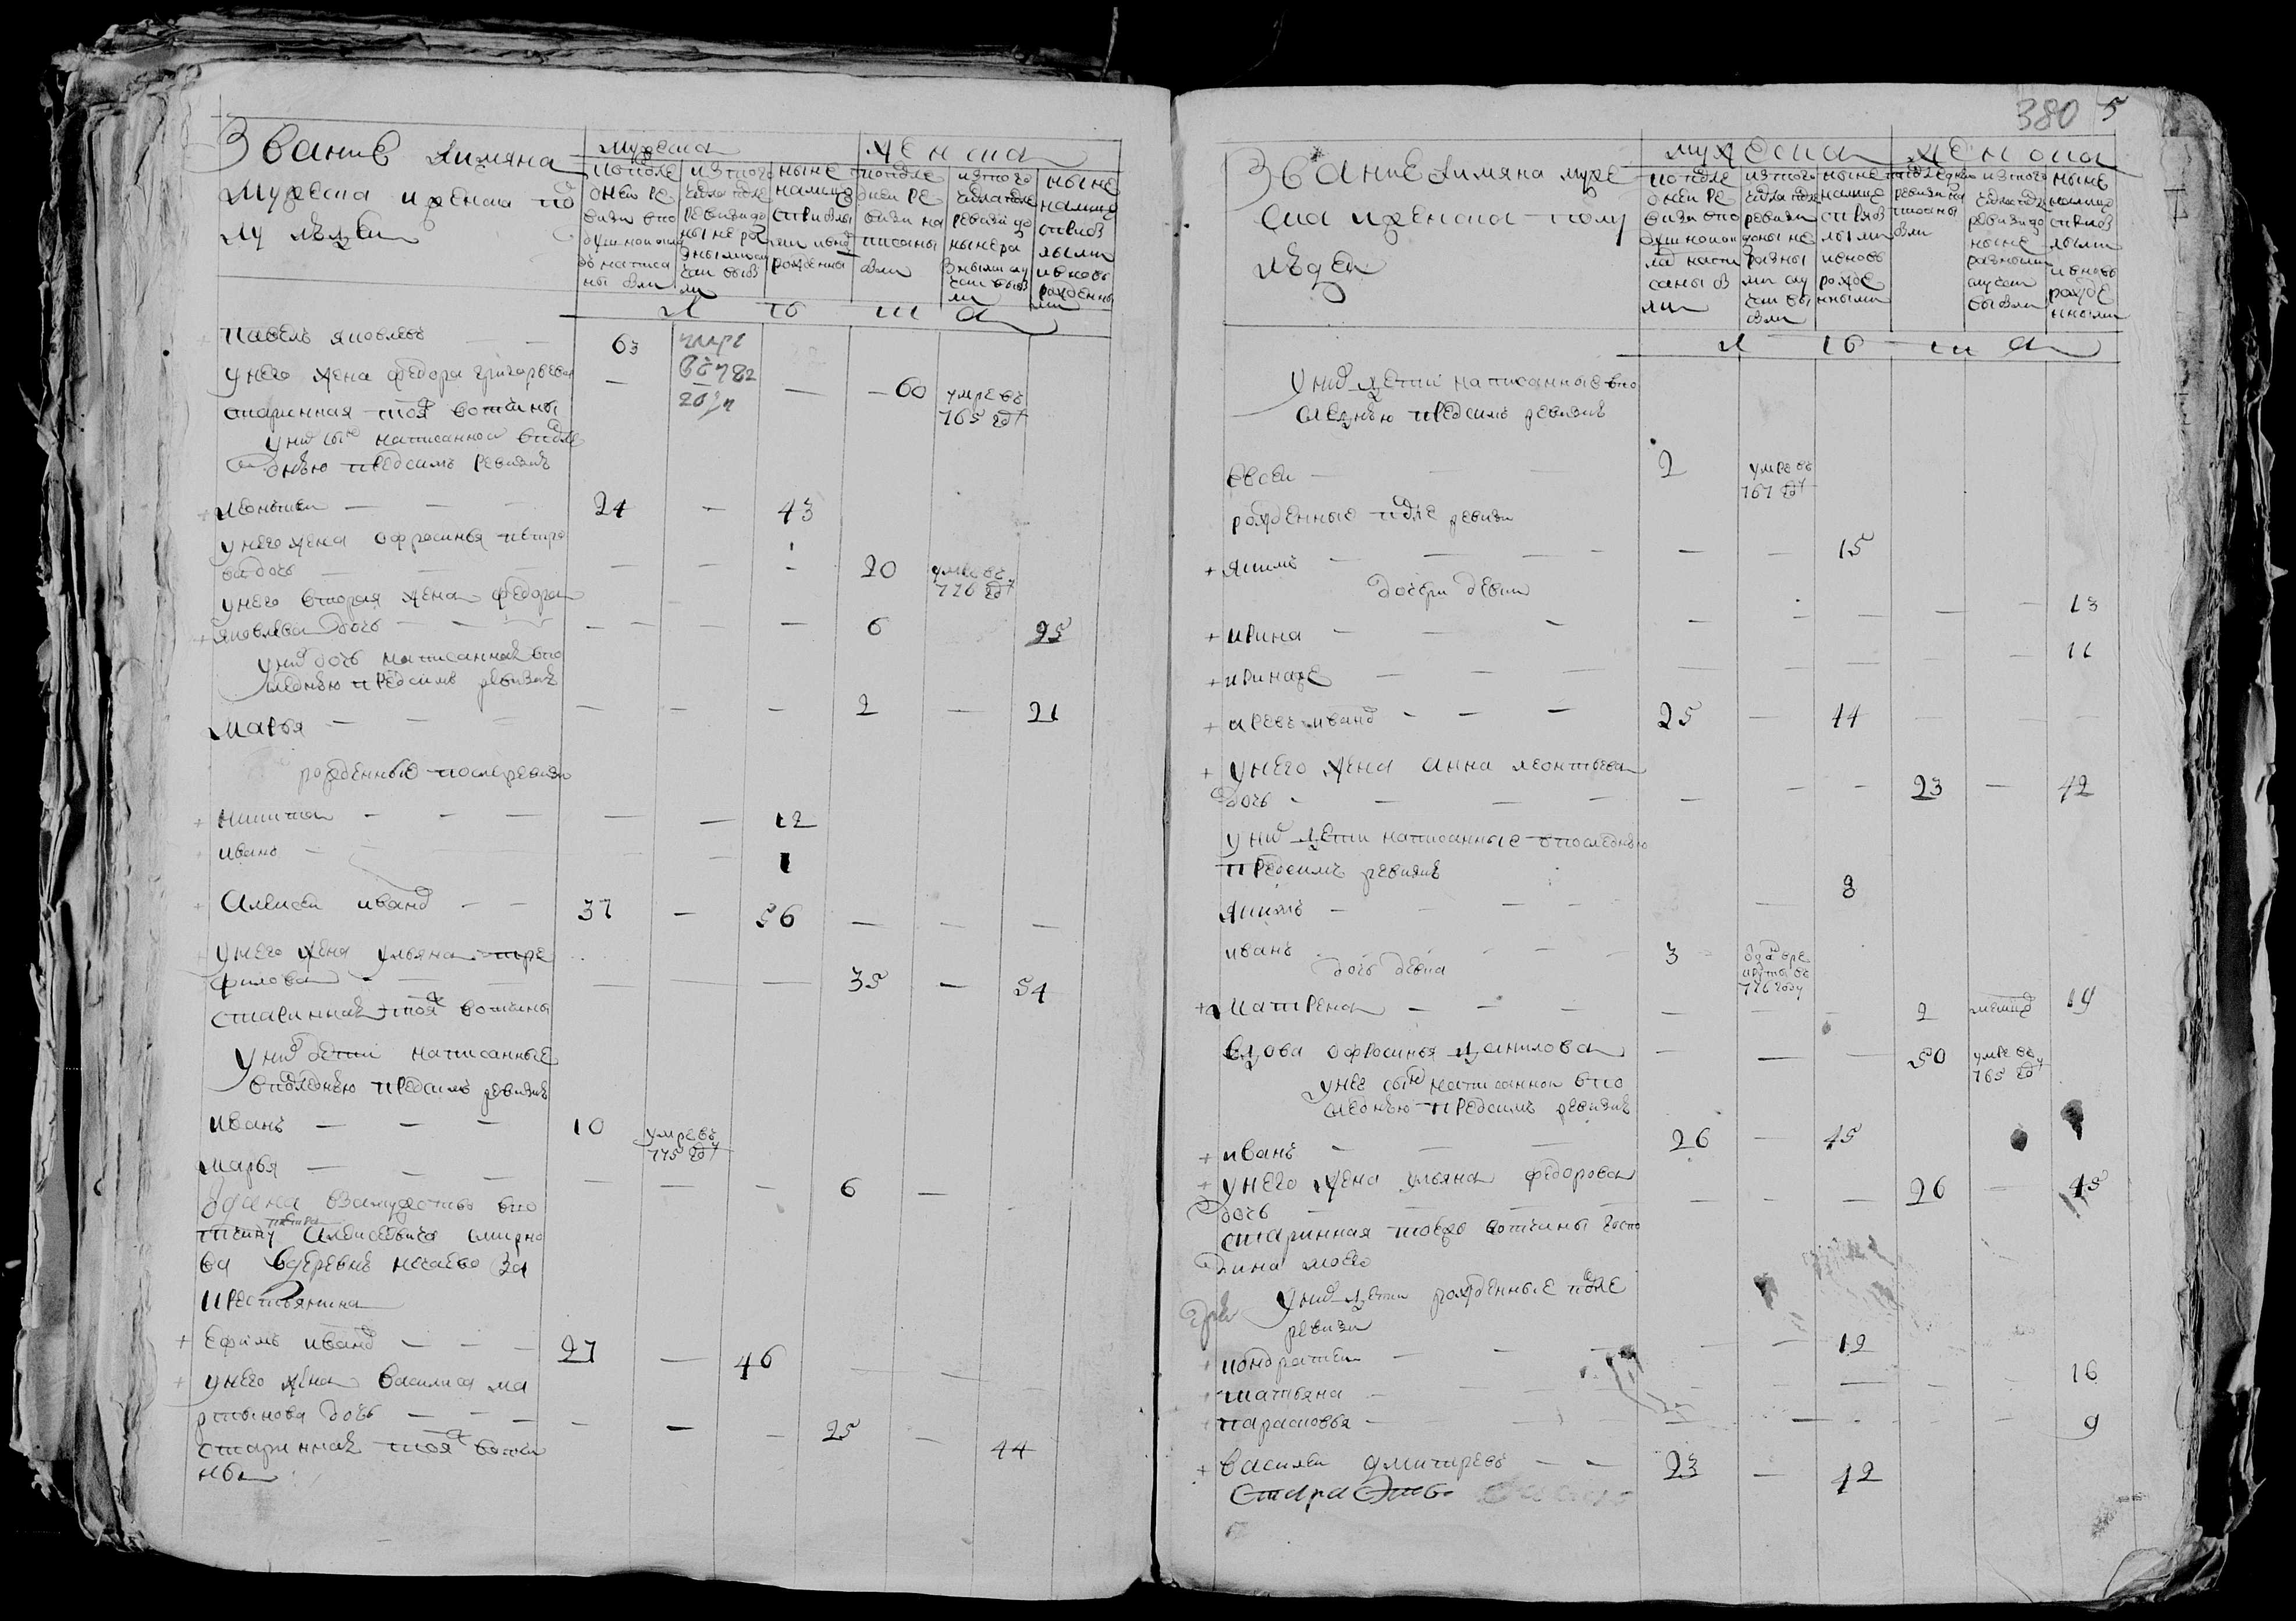 Звание имяна
мужеска и женска по
лу людеи
мужеска
женска
попосле
днеи ре
визии по
душном окла
де написа
ны были
из того
числа после
ревизи до
ныне ра
зными слу
чаи выб
ли
ныне
на лицо
с прибылы
ми и внов
рожденны
попосле
днеи ре
визии на
писаны
были
из того
числа после
ревизи до
ныне ра
зными слу
чаи выб
ли
ныне
на лицо
с прибы
лыми
и вновь
рожденны
ми
л ѣ т а
Павелъ яковлевъ — — 63 умре
въ 782
году
у него жена федора григорьева — — — 60 умре въ
765 году
старинная тоя ж вотчины
у них сын написанной в после
днею пред сим ревизию
леонтеи — — — 24 — 43
у него жена офросинья петро
ва дочь — — — — 20 умре въ
776 году
у него вторая жена федора
яковлева дочь — — — — — 6 25
у них дочь написанная в по
следнею пред симъ ревизию
марья — — — — — — 2 — 21
рожденные после ревизи
никита — — — — — 12
иванъ — — — 1
Алексеи иванов — — 37 — 56 — — —
у него жена ульяна тро
филова — — — — 35 — 54
старинная тоя ж вотчины
у них дети написанные
в последнею пред симъ ревизию
иванъ — — — 10 умре въ
775 году
марья — — — — — — 6 —
отдана в замужство в во
тчину петра Алексеевича смирно
ва в деревню нечаево за
крестьянина
+ Ефимъ иванов — — — 27 — 46 — — —
+ у него жена василиса ма
ртынова дочь — — — — — — 25 — 44
старинная тоя ж вотчи
ны
380 5
Звание имяна муже
ска и женска полу
людеи
мужеска
женска
попосле
днеи ре
визии по
душном окла
де напи
саны бы
ли
из того
числа после
ревизи
до ныне
разны
ми слу
чаи вы
были
ныне
на лицо
с прибы
лыми
и вновь
рожде
нными
последнеи
ревизи на
писаны
были
из того
числа после
ревизи до
ныне
разными
случаи
выбыли
ныне
на лицо
с прибы
лыми
и вновь
рожде
нными
л ѣ т а
у них дети написанные в по
следнею пред симъ ревизию
— — 2 умре въ
767 году
рожденные после ревизи
+ якимъ — — — — — — 15
дочери девки
+ ирина — — — — — — — — 13
+ — — — — — — — — 11
+ иванов — — — 25 — 44
+ у него жена анна леонтьева
дочь — — — — — — — 23 — 42
у них дети написанные в последнею
пред симъ ревизию
якимъ — — — — — 8
иванъ — — — 3 отдан в ре
круты въ
776 году
дочь девка
+ матрена — — — — — — 2 19
вдова офросинья данилова — — — 50 умре въ
765 году
у нее сын написанной в по
следнею пред симъ ревизию
+ иванъ — — 26 — 45
+ у него жена ульяна федорова
дочь — — — — — 26 — 45
старинная тоеж вотчины госпо
дина моего
у них дети рожденные после
ревизи
+ кондратеи — — — — — 12
+ татьяна — — — — — — — — 16
+ парасковья — — — — — — 9
+ василеи дмитревъ — — 23 — 42